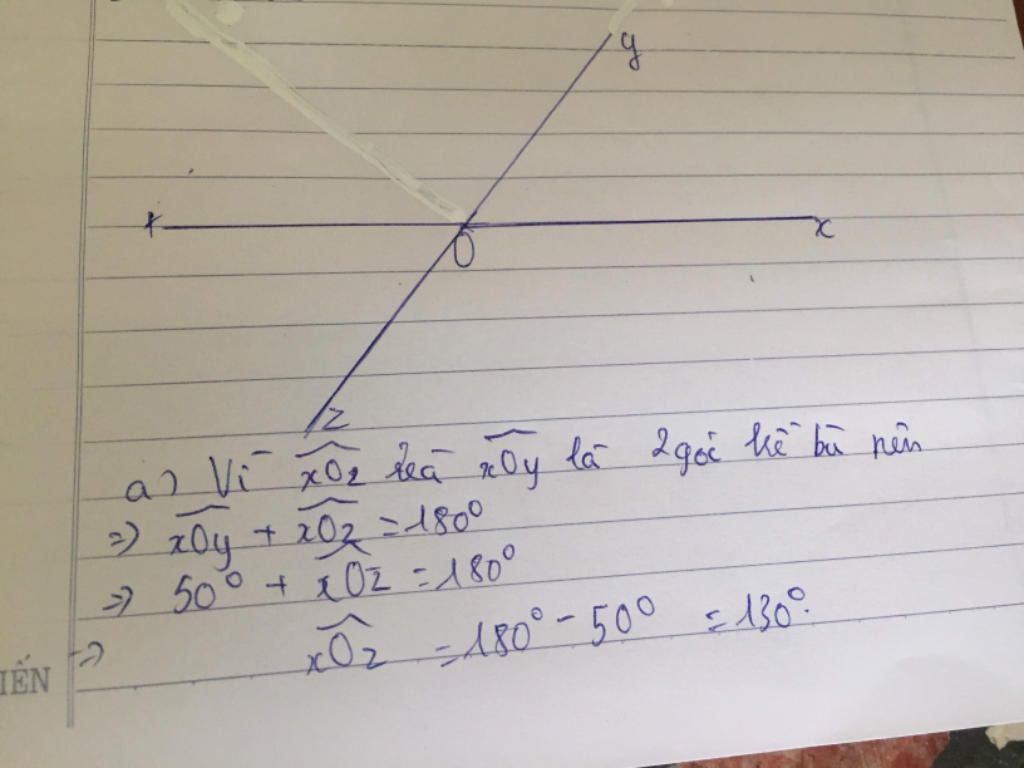 y
t x
O
z
a) Vì xOz và xOy là 2 góc kề bù nên
=> xOy + xOz = 180°
=> 50° + xOz = 180°
=> xOz = 180° - 50° = 130°.
IẾN